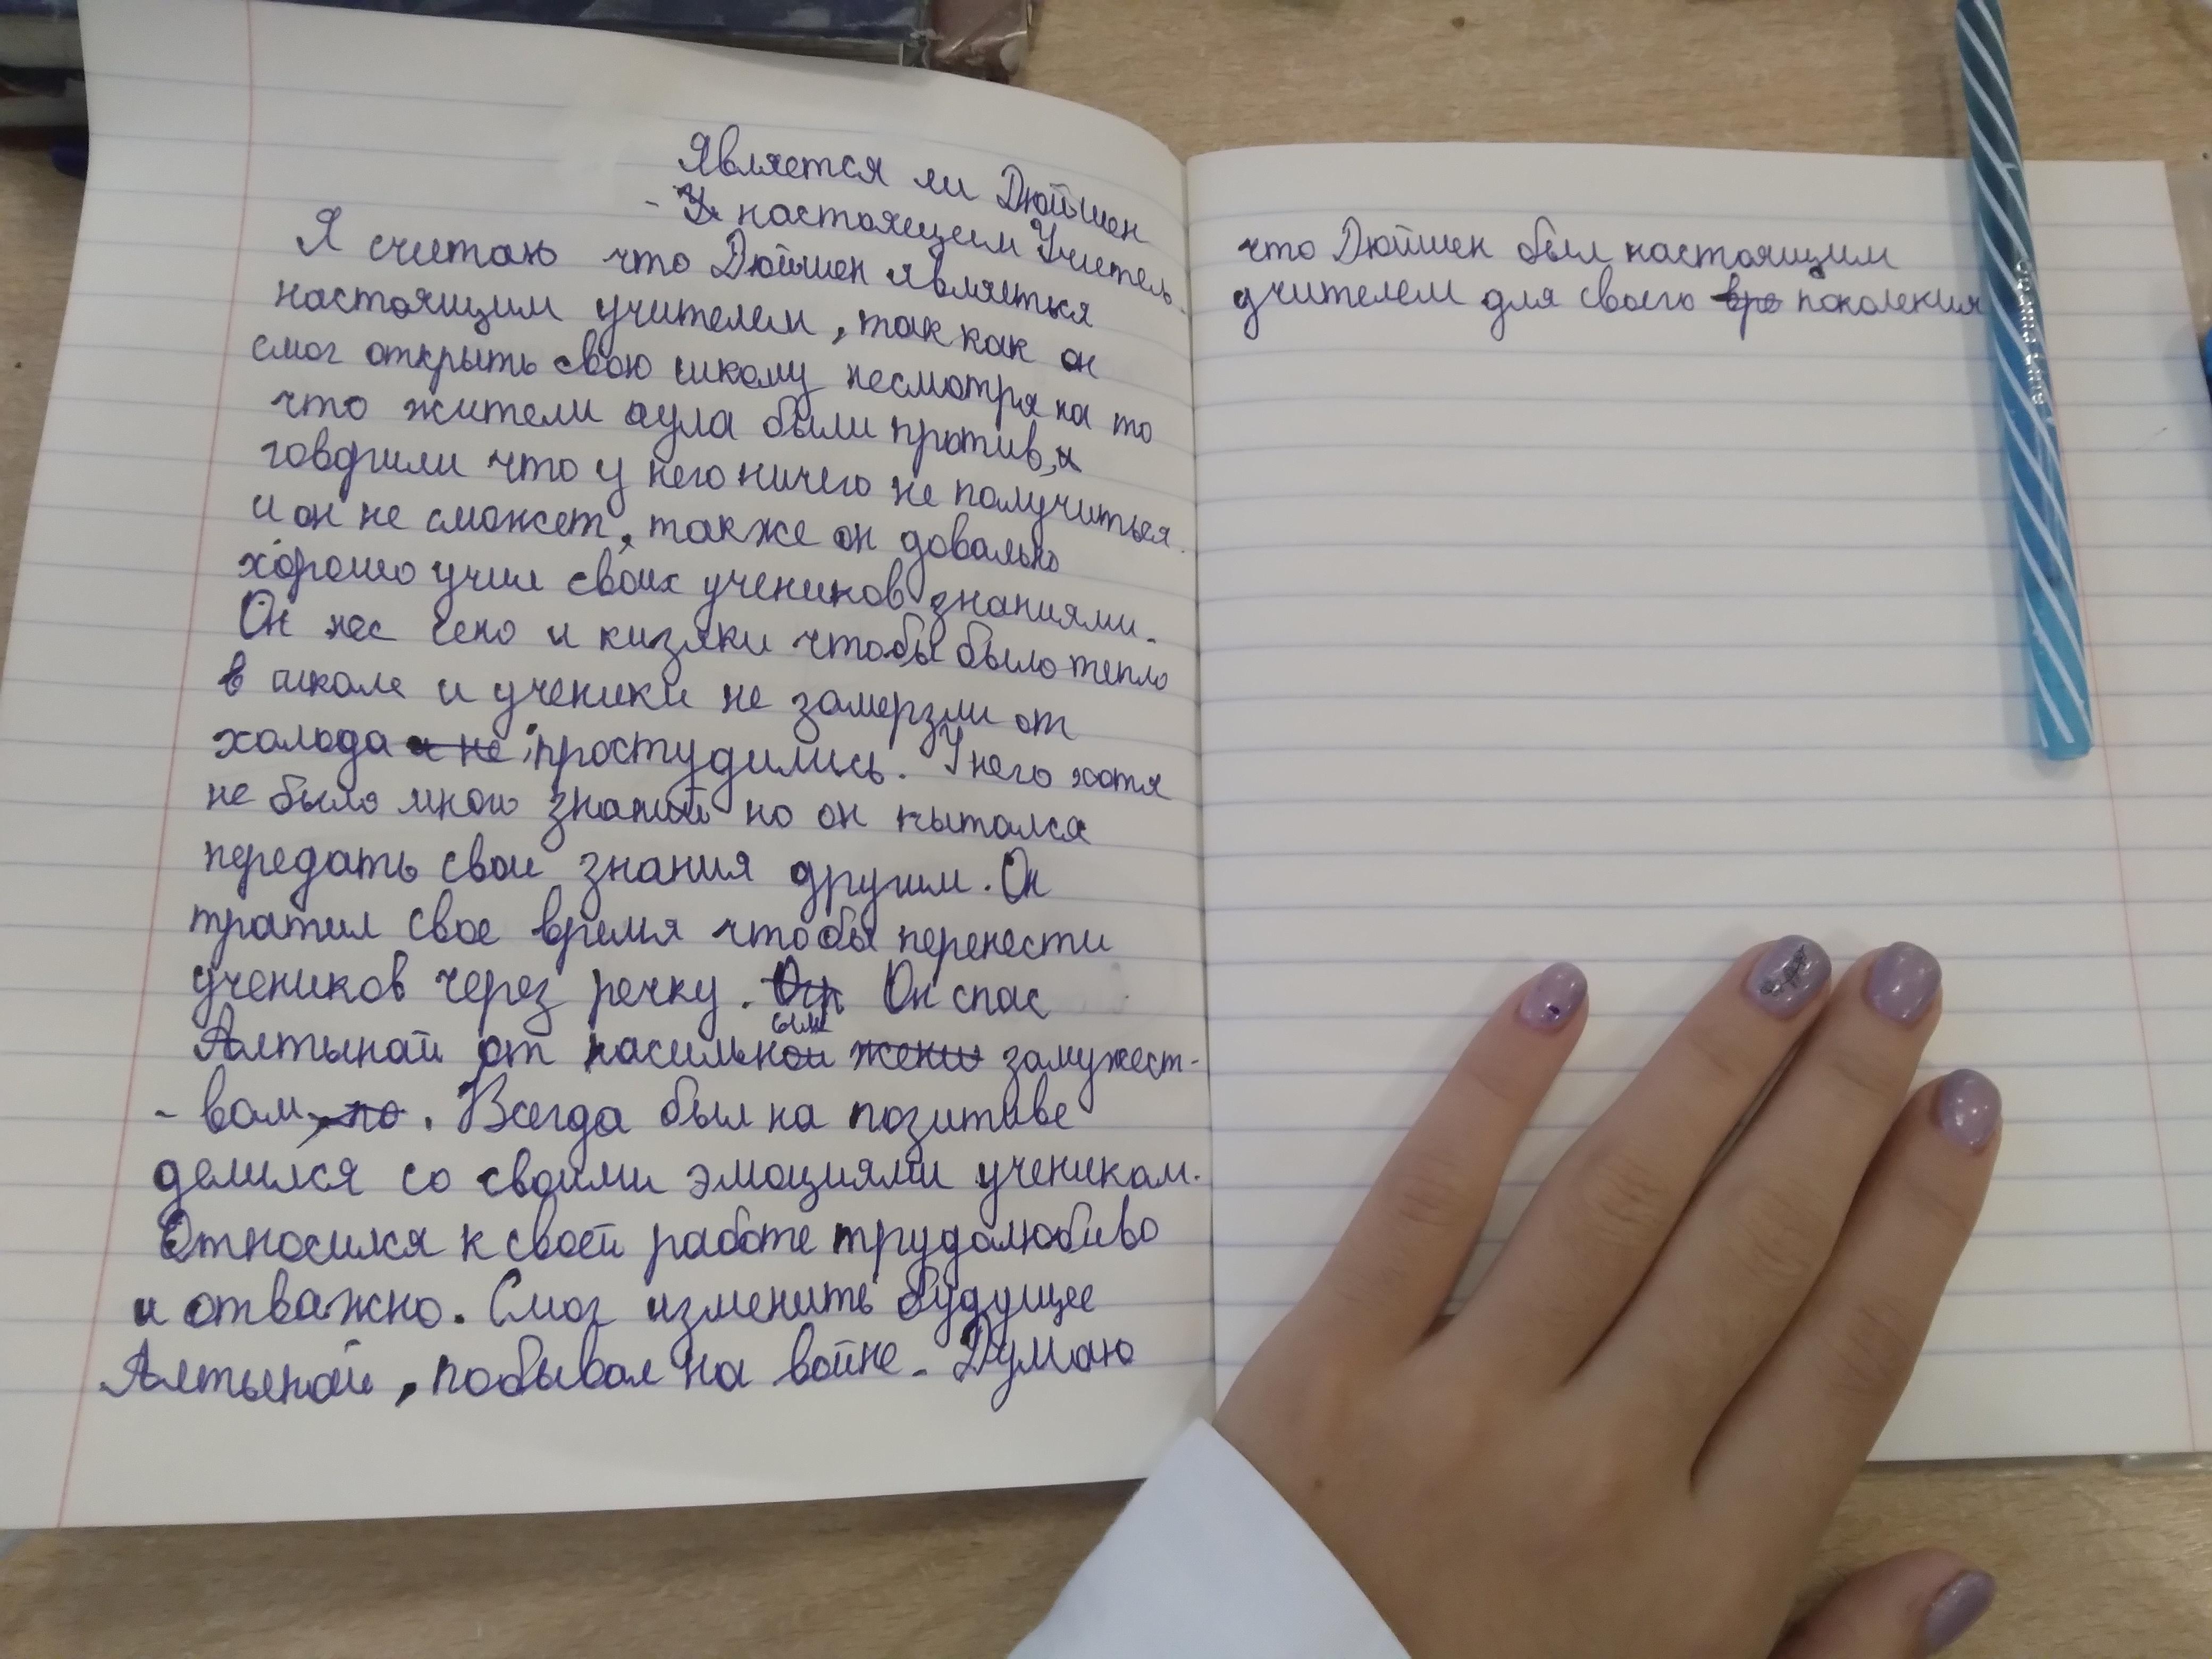 Является ли Дюйшен
- настоящем Учитель.
Я считаю что Дюйшен являеться
настоящим учителем, так как он
смог открыть свою школу несмотря на то
что жители аула были против, и
говорили что у него ничего не получиться.
и он не сможет, также он довально
хорошо учил своих учеников знаниями.
Он нес сено и кизяки чтобы было тепло
в школе и ученики не замерзли от
холода и не простудились. У него хотя
не было много знаний но он пытался
передать свои знания другим. Он
тратил свое время чтобы перенести
учеников через речку. Он спас
Алтынай от насильной жени замужест-
- вам, но. Всегда был на позитиве
делился со своими эмоциями ученикам.
Относился к своей работе трудолюбиво
и отважно. Смог изменить будущее
Алтынай, побывал на войне. Думаю
что Дюйшен был настоящим
учителем для своего вре поколения